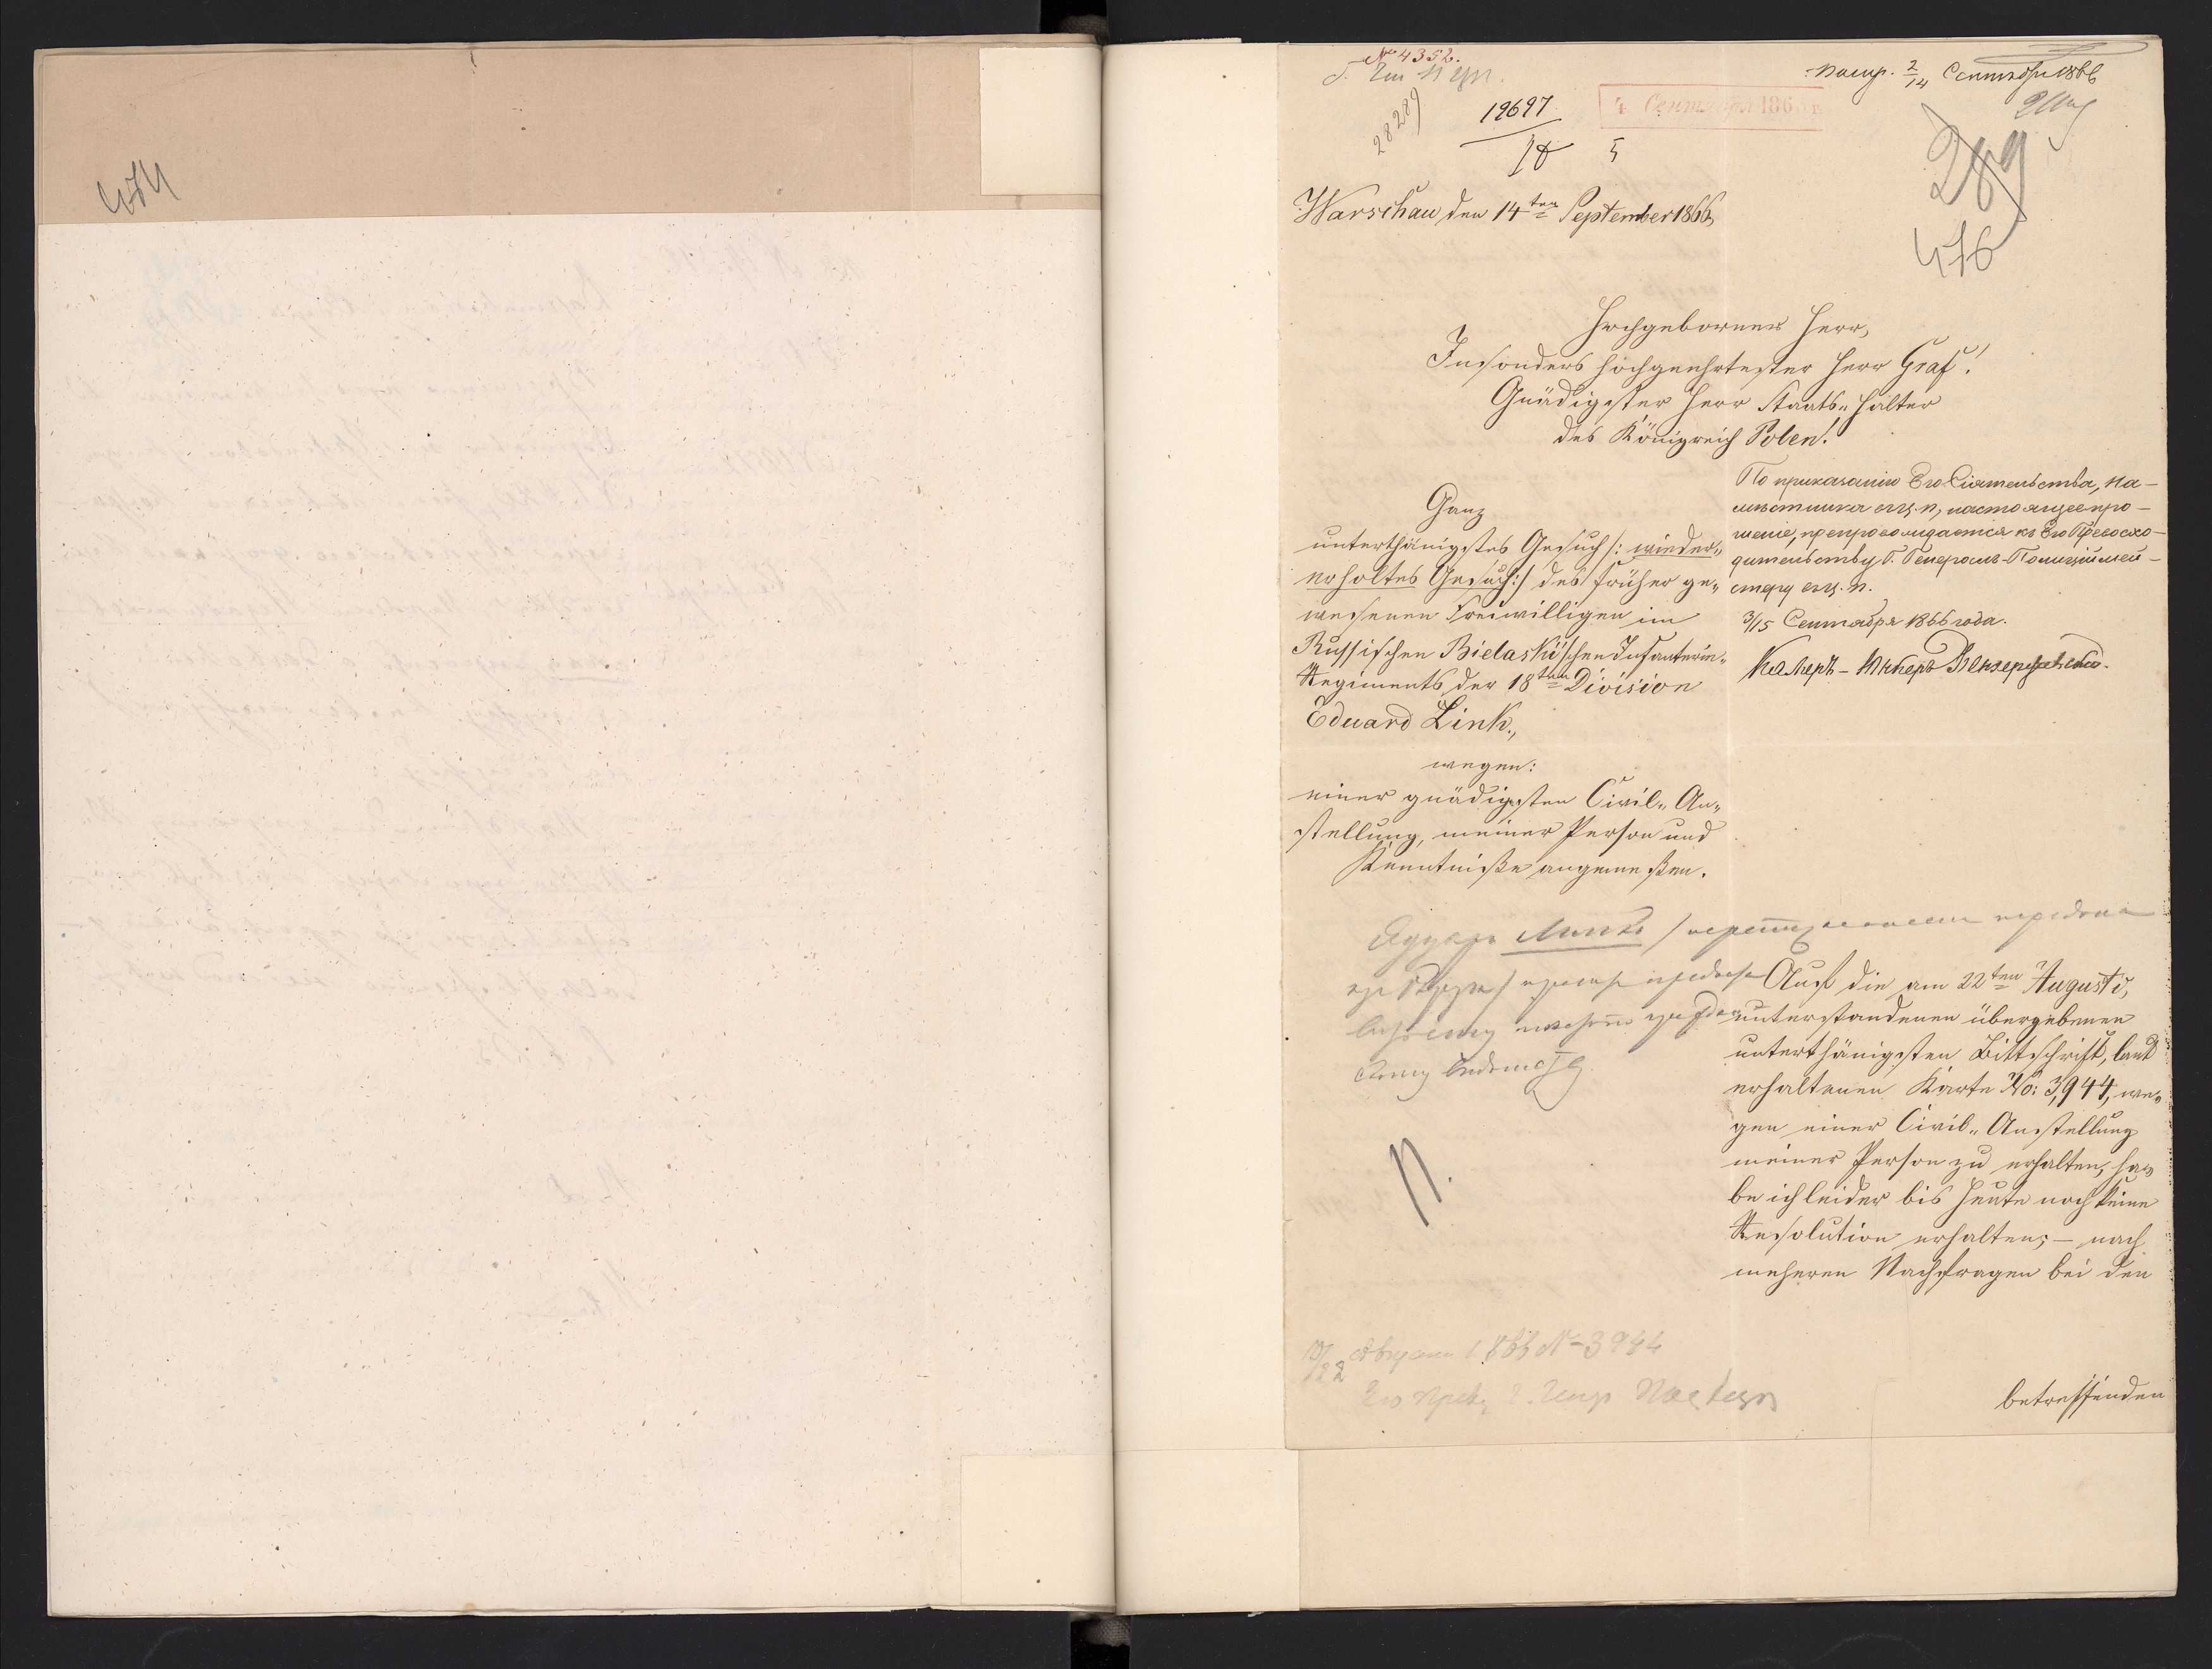 484
№ 4352.
28289
19697
18 5
4 Сентября 186
2/14 Сентября 1866
289
476
Warschau den 14ten September 1866
Hochgeborner Herr,
Insonders hochgeehrtester Herr Graf!
Gnädigster Herr Staats„halter
des Königreich Polen!
Ganz
unterthänigstes Gesuch /: wieder„
erholtes Gesuch :/ des früher ge„
wesenen Freiwilligen im
Russischen Bielaski'schen Infanterie„
Regiments der 18ten Division
Eduard Link.,
wegen:
einer gnädigsten Civil„An„
stellung, meiner Person und
Kenntniße angemeßen.
По приказанію Его Сіятельства, На-
мѣстника въ Ц. П., настоящее про-
шеніе, препровождается къ Его Превосхо-
дительству Г. Генералъ-Полиціймей-
стеру въ Ц. П.
3/15 Сентября 1866 года.
Камеръ-Юнкеръ
Линкъ
Auf die am 22ten Augusti,
unterstandenen übergebenen
unterthänigsten Bittschrift, laut
erhaltenen Karte No: 3,944, we„
gen einer Civil„Anstellung
meiner Person zu erhalten, ha„
be ich leider bis heute noch keine
Resolution erhalten; – nach
meheren Nachfragen bei den
П.
10/22 Августа 1866 № 3944
betreffenden